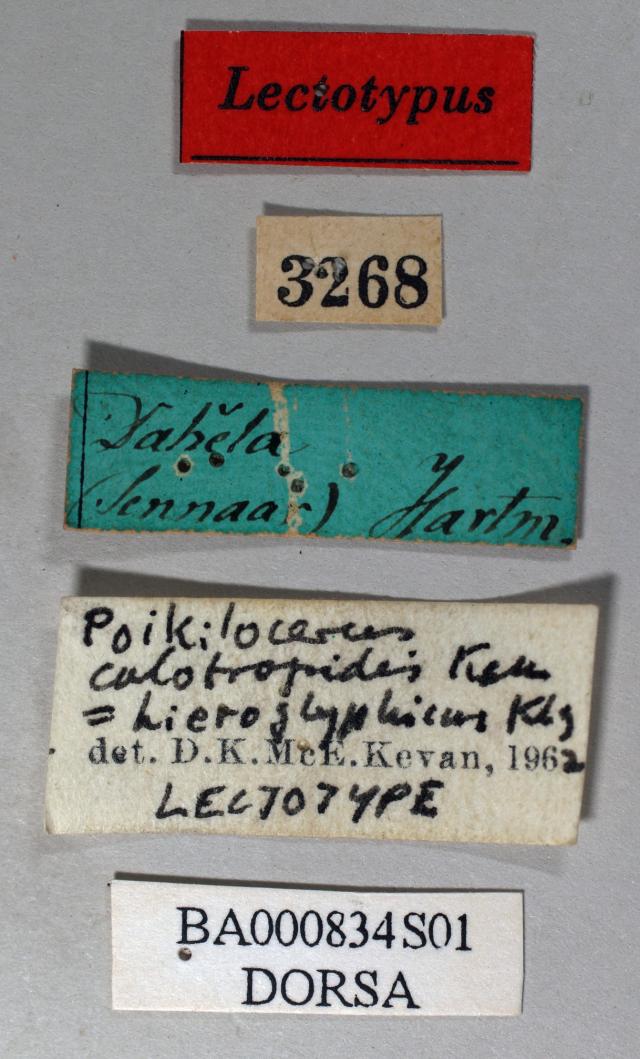 Lectotypus
3268
Dahĕla
(Sennaar) Hartm.
Poikilocerus
calotropidis
= hieroglyphicus Klg
det. D.K.McE.Kevan, 1962
LECTOTYPE
BA000834S01
DORSA